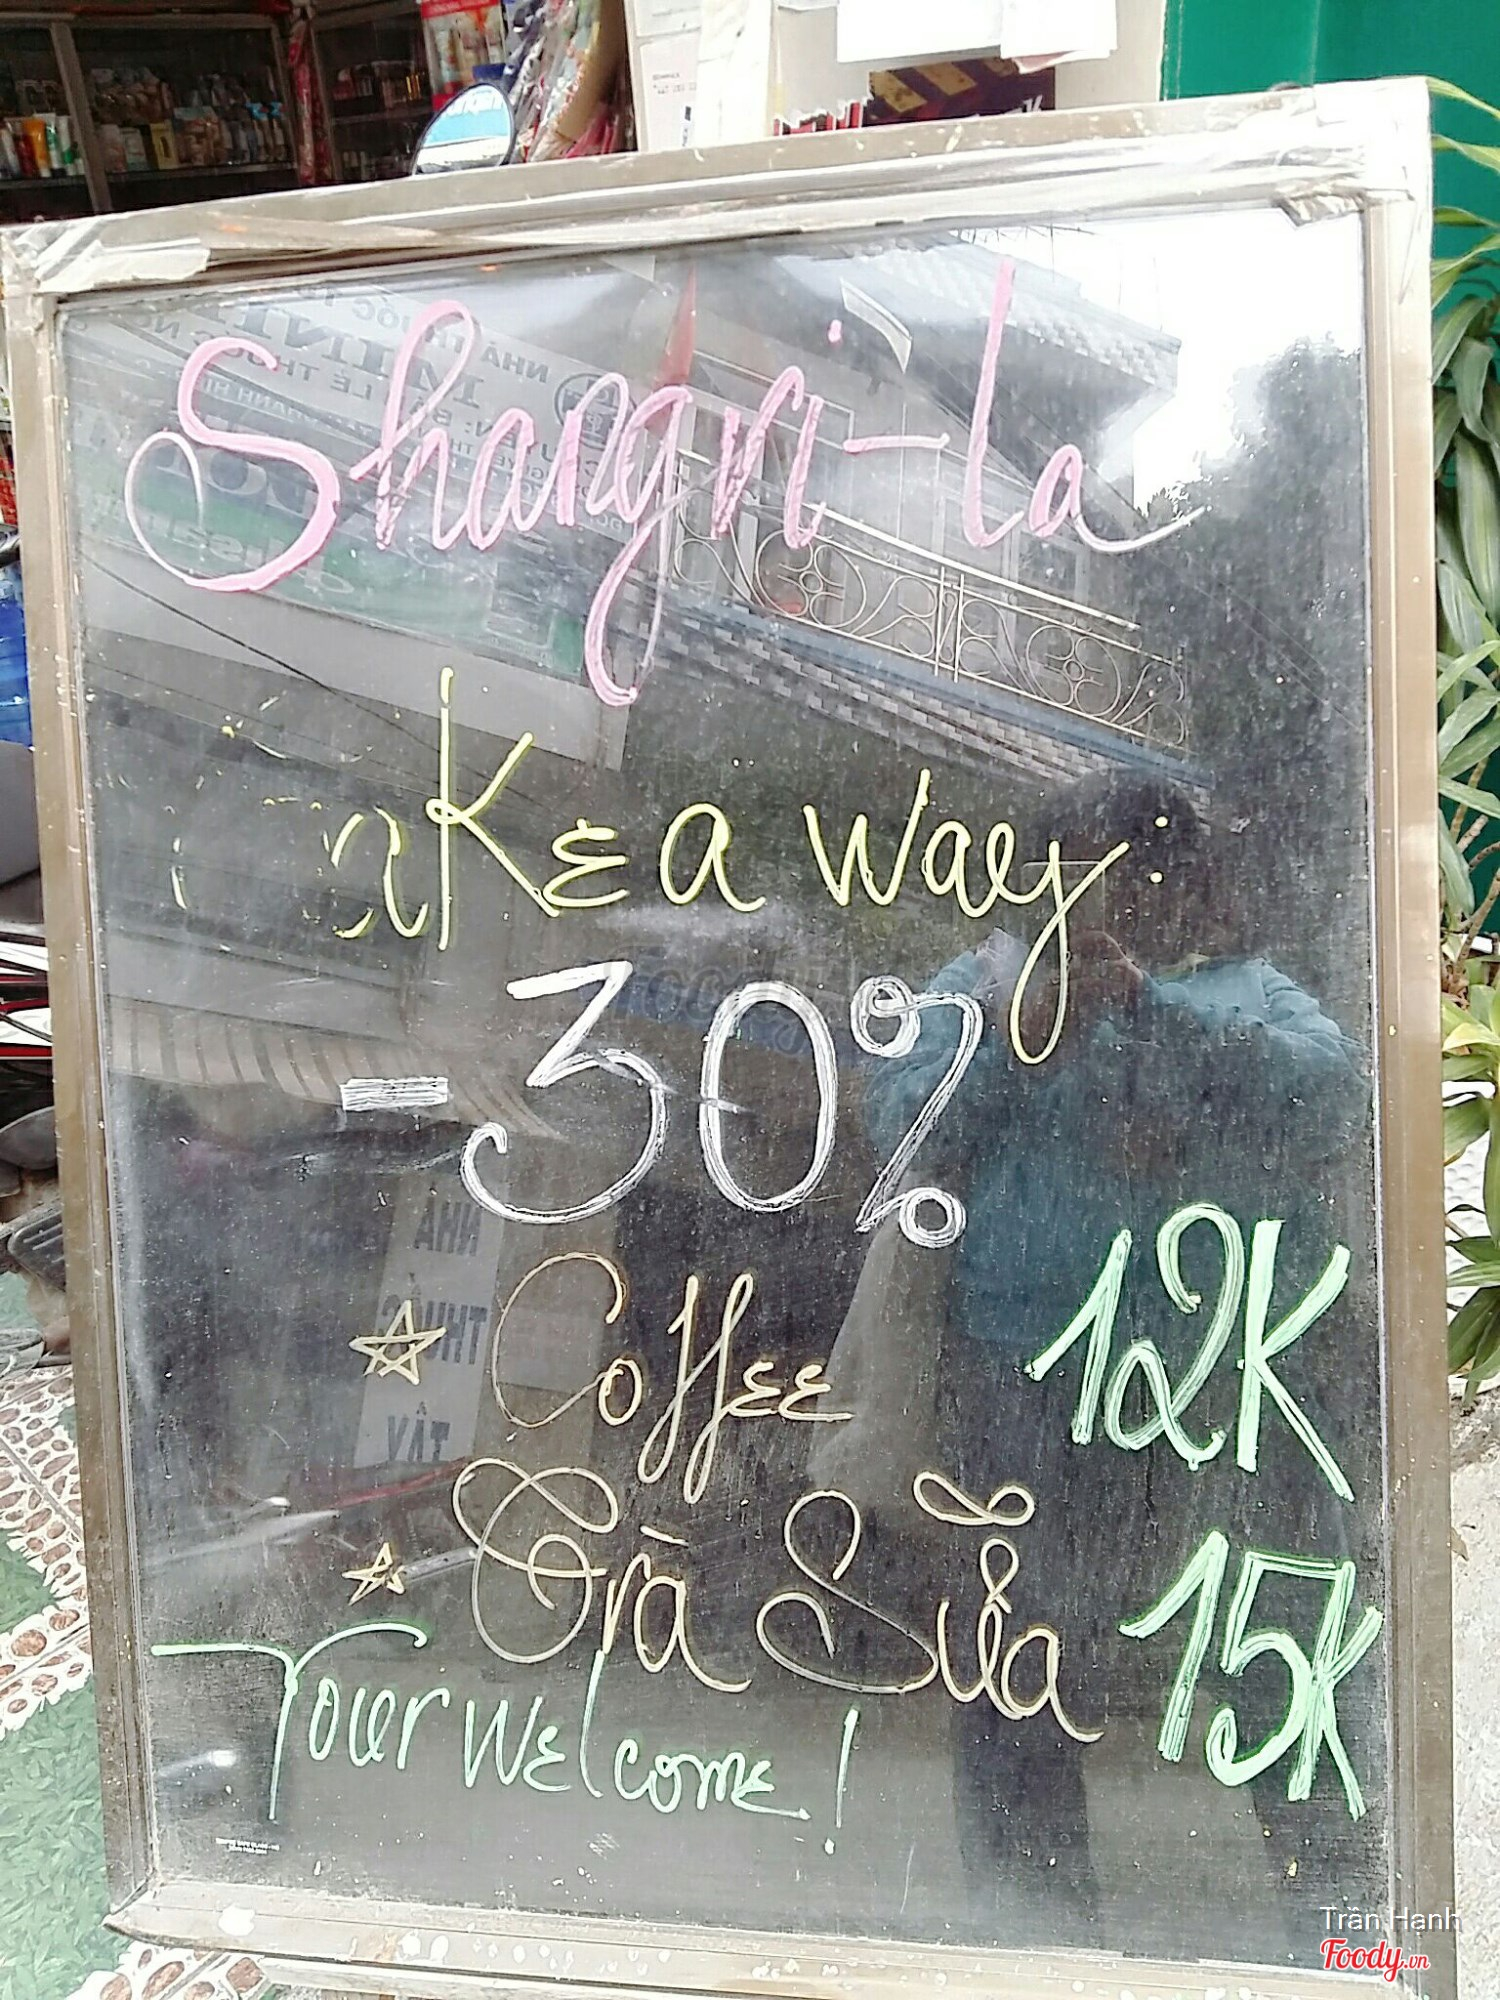 Shangri-La
Take a way:
-30%
Coffee 12K
Trà Sữa 15K
Your welcome!
Trần Hạnh
Foody.vn